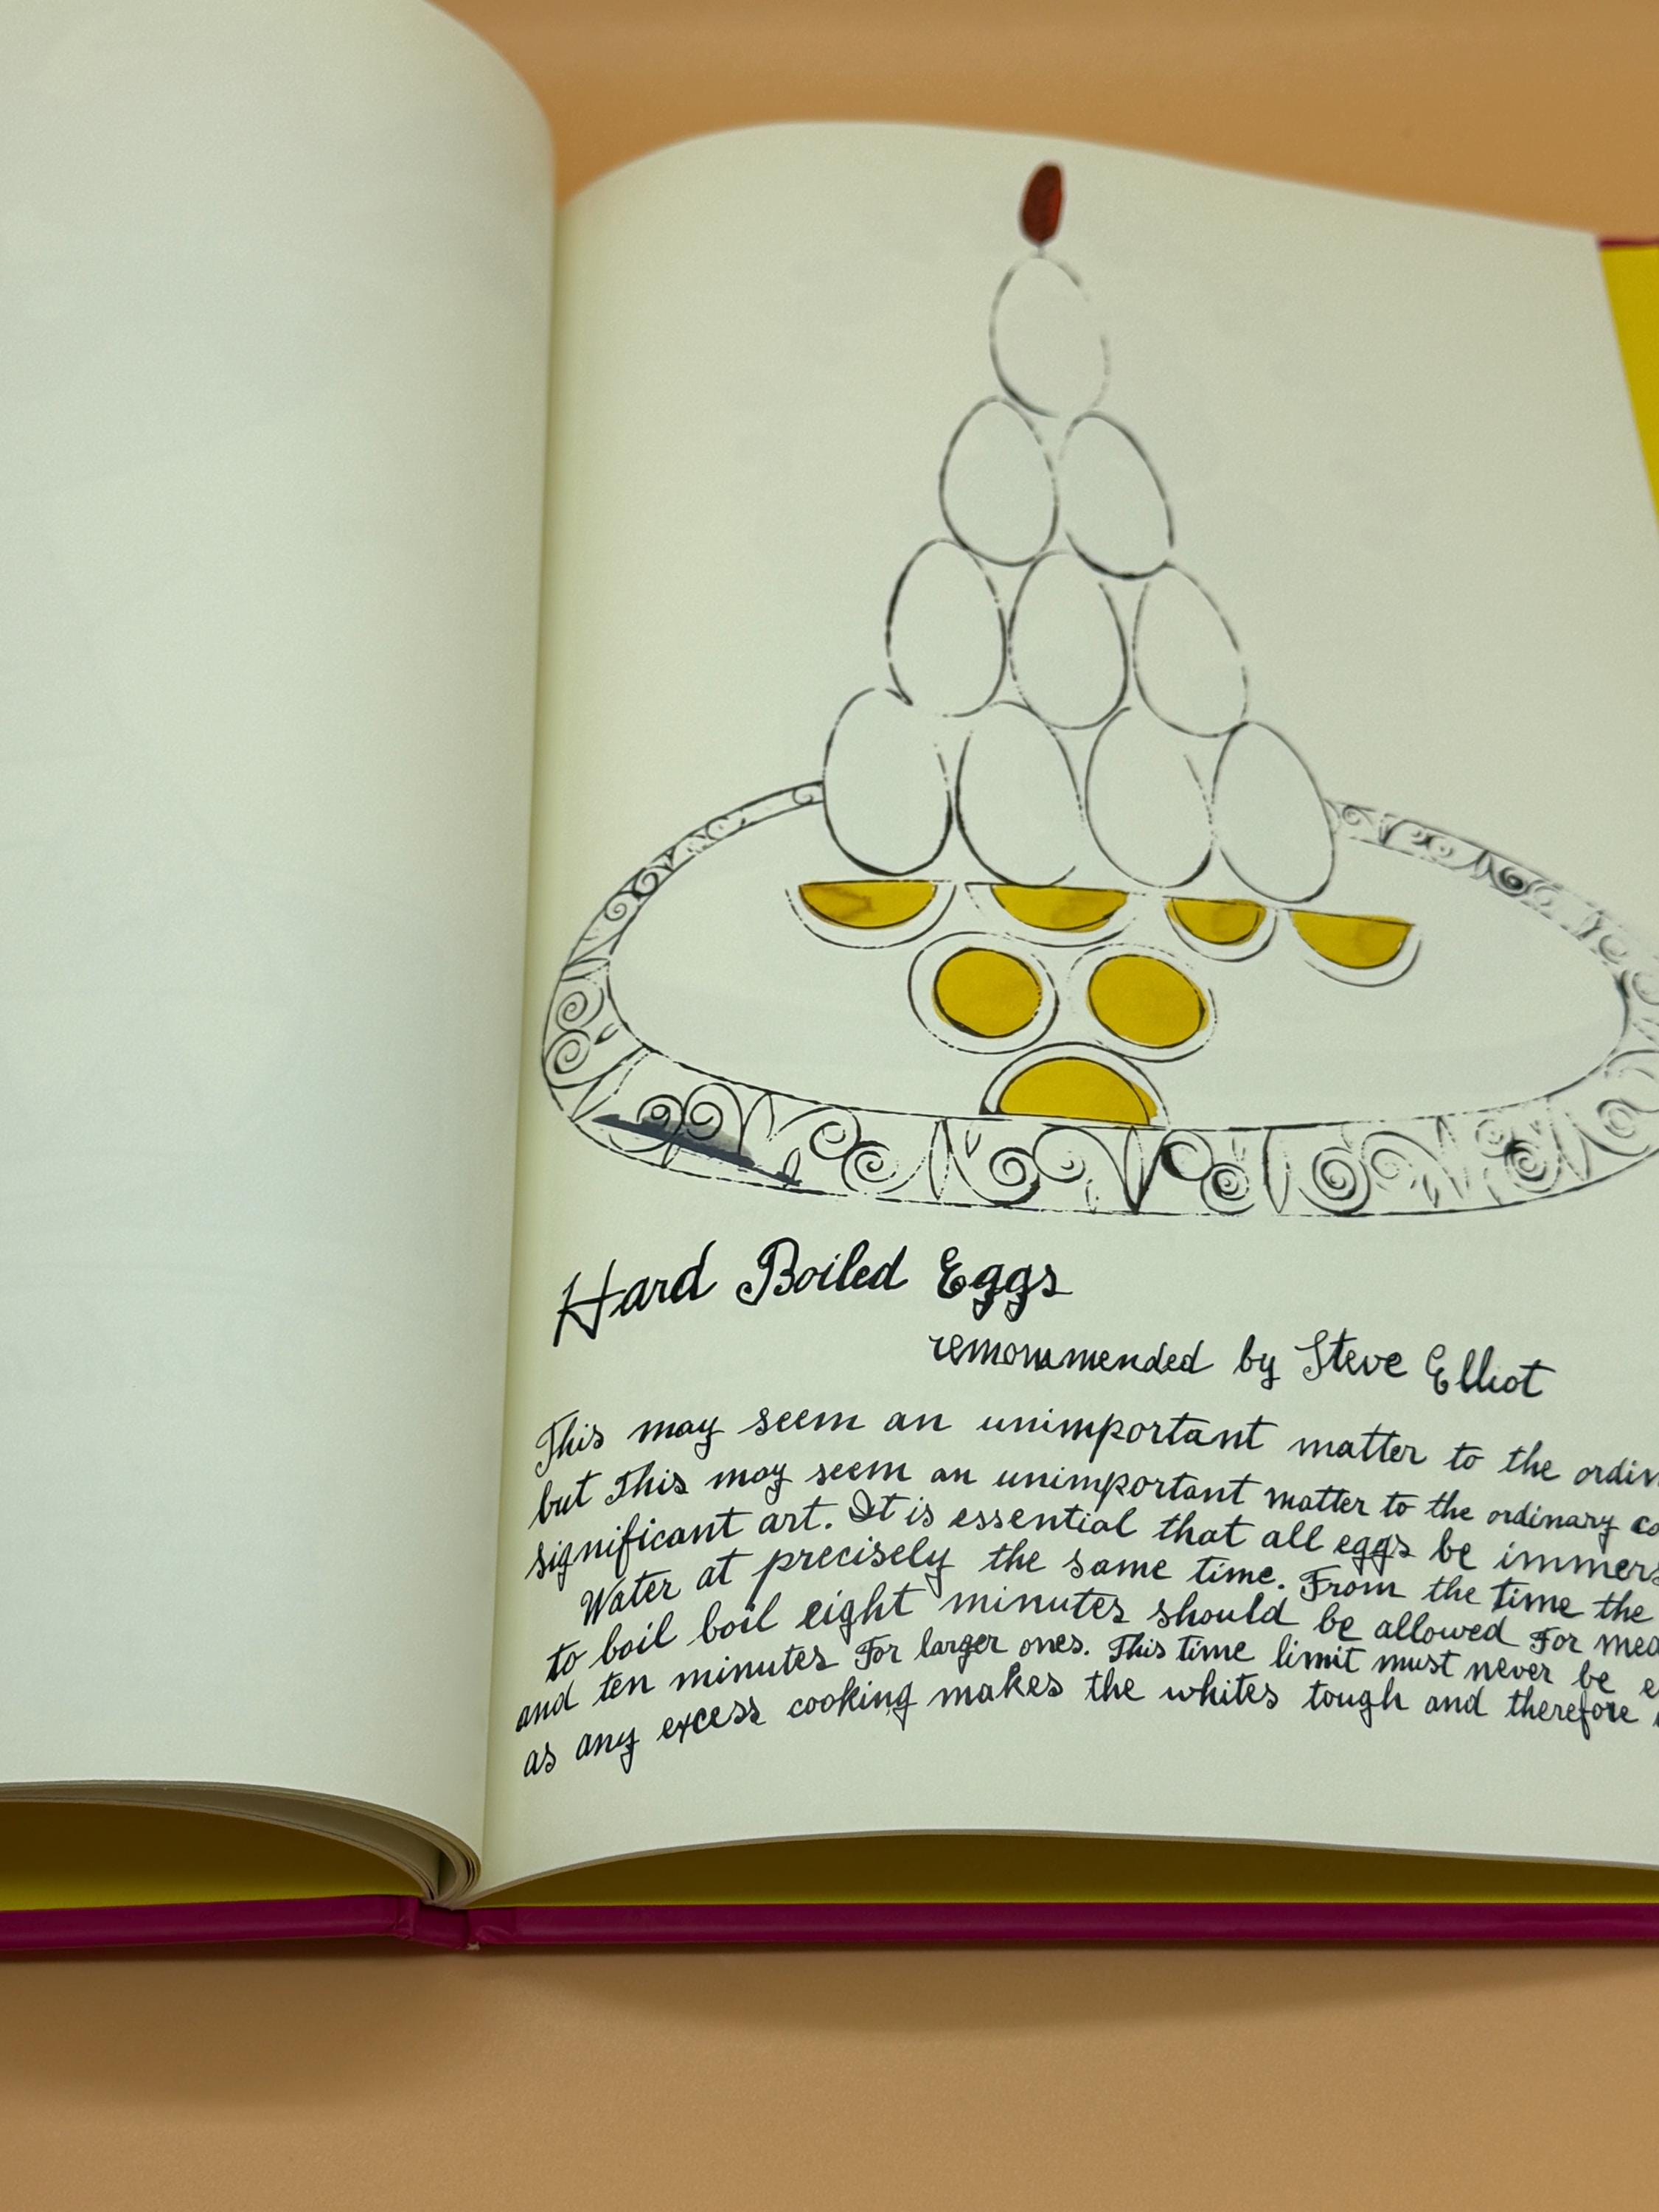 Hard Boiled Eggs
remommended by Steve Elliot
This may seem an unimportant matter to the
but This may seem an unimportant matter to the ordinary
significant art. It is essential that all eggs be
Water at precisely the same time. From the time the
to boil boil eight minutes should be allowed For
and ten minutes For larger ones. This time limit must never be
as any excess cooking makes the whites tough and therefore